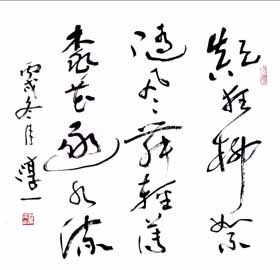 顛狂柳絮
隨風舞輕薄
桃花逐水流
丙戌冬月淳一